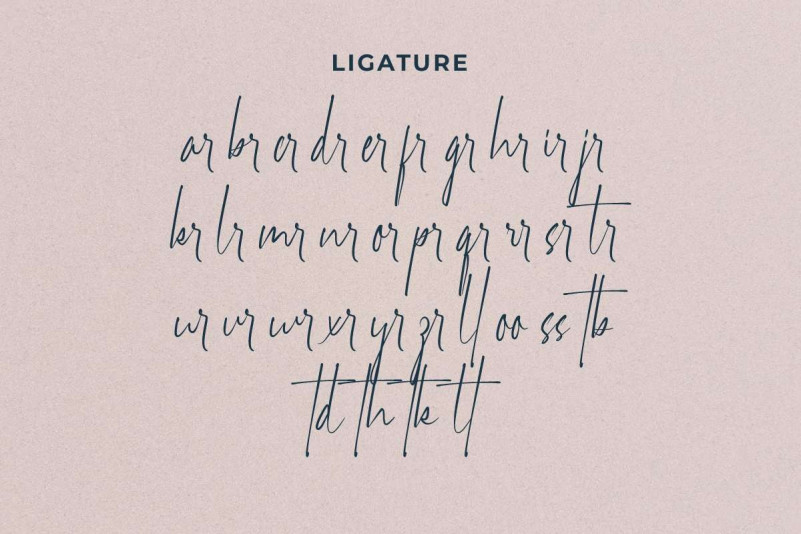 LIGATURE
ar br cr dr er fr gr hr ir jr
kr lr mr nr or pr qr rr sr tr
ur vr wr xr yr zr ll oo ss tb
td th tk tt